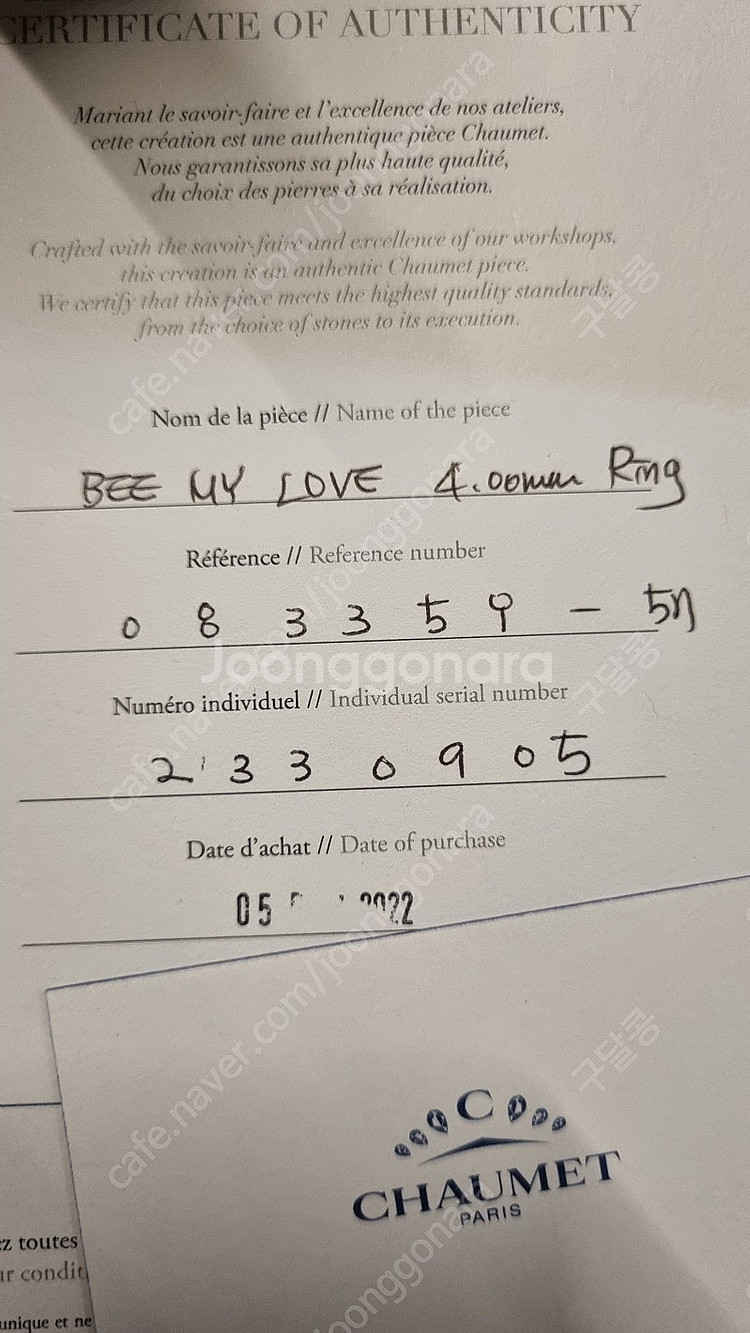 CERTIFICATE OF AUTHENTICITY
Mariant le savoir-faire et l'excellence de nos ateliers,
cette création est une authentique pièce Chaumet.
Nous garantissons sa plus haute qualité,
du choix des pierres à sa réalisation.
Crafted with the savoir-faire and excellence of our workshops,
this creation is an authentic Chaumet piece.
We certify that this piece meets the highest quality standards,
from the choice of stones to its execution.
Nom de la pièce // Name of the piece
BEE MY LOVE 4.00mm Ring
Référence // Reference number
0 8 3 3 5 9 - 51
Joonggonara
Numéro individuel // Individual serial number
2 3 3 0 9 0 5
Date d'achat // Date of purchase
05 2022
C
CHAUMET
PARIS
ez toutes
ur condit
unique et ne
cafe.naver.com/joonggonara
구달콩